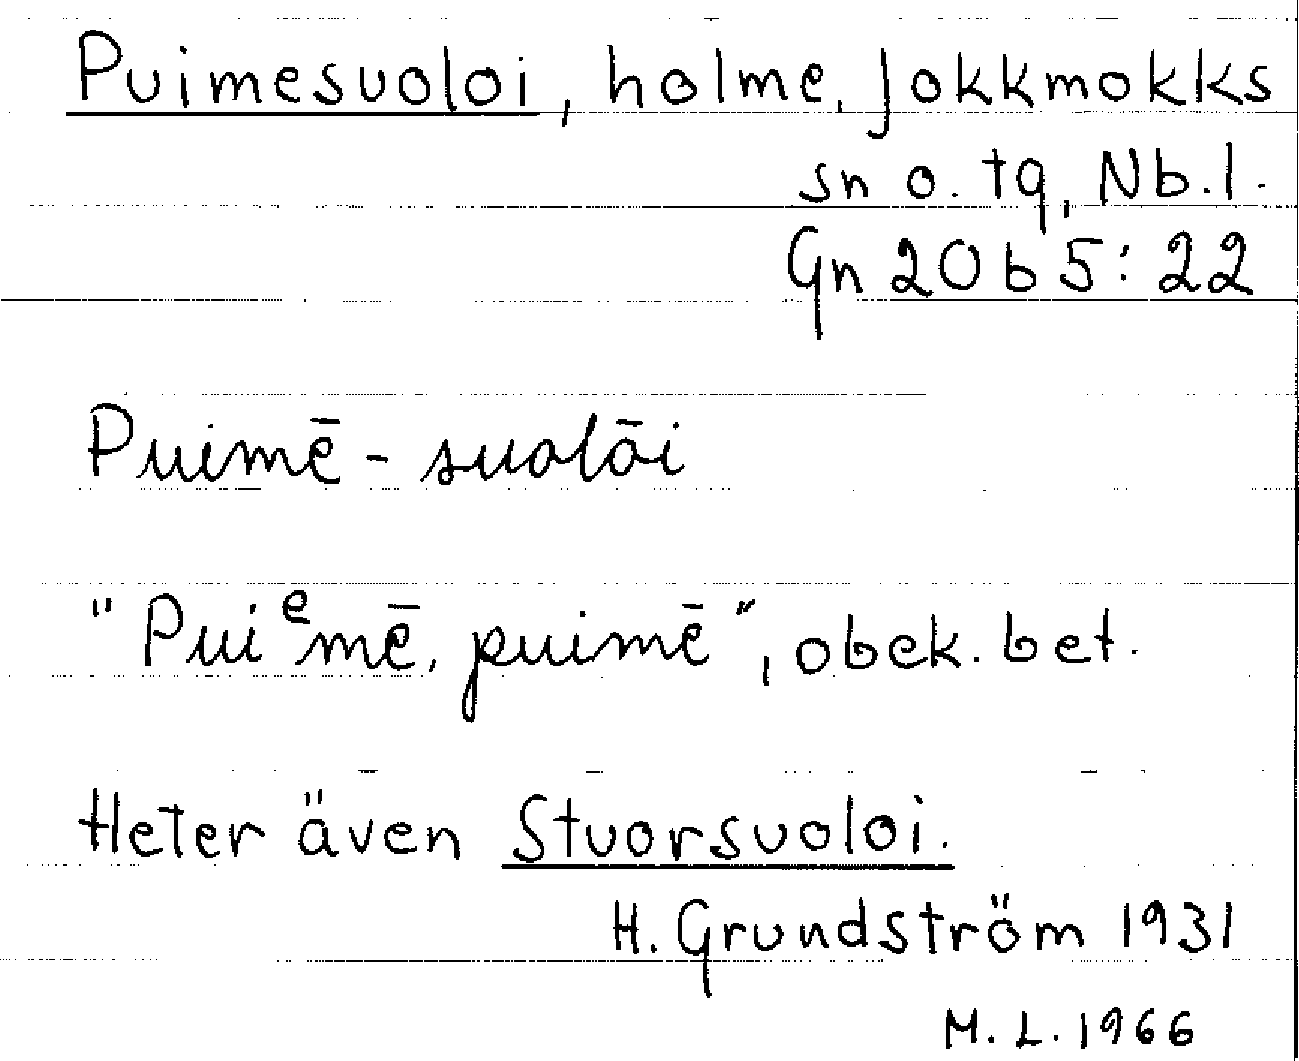 Puimesuoloi, holme, Jokkmokks
sn o. tg, Nb.l.
Gn 20 b 5:22
Puimē-suolāi
"Puiᵉmē, puimē", obek. bet.
Heter även Stuorsuoloi.
H. Grundström 1931
M.L. 1966